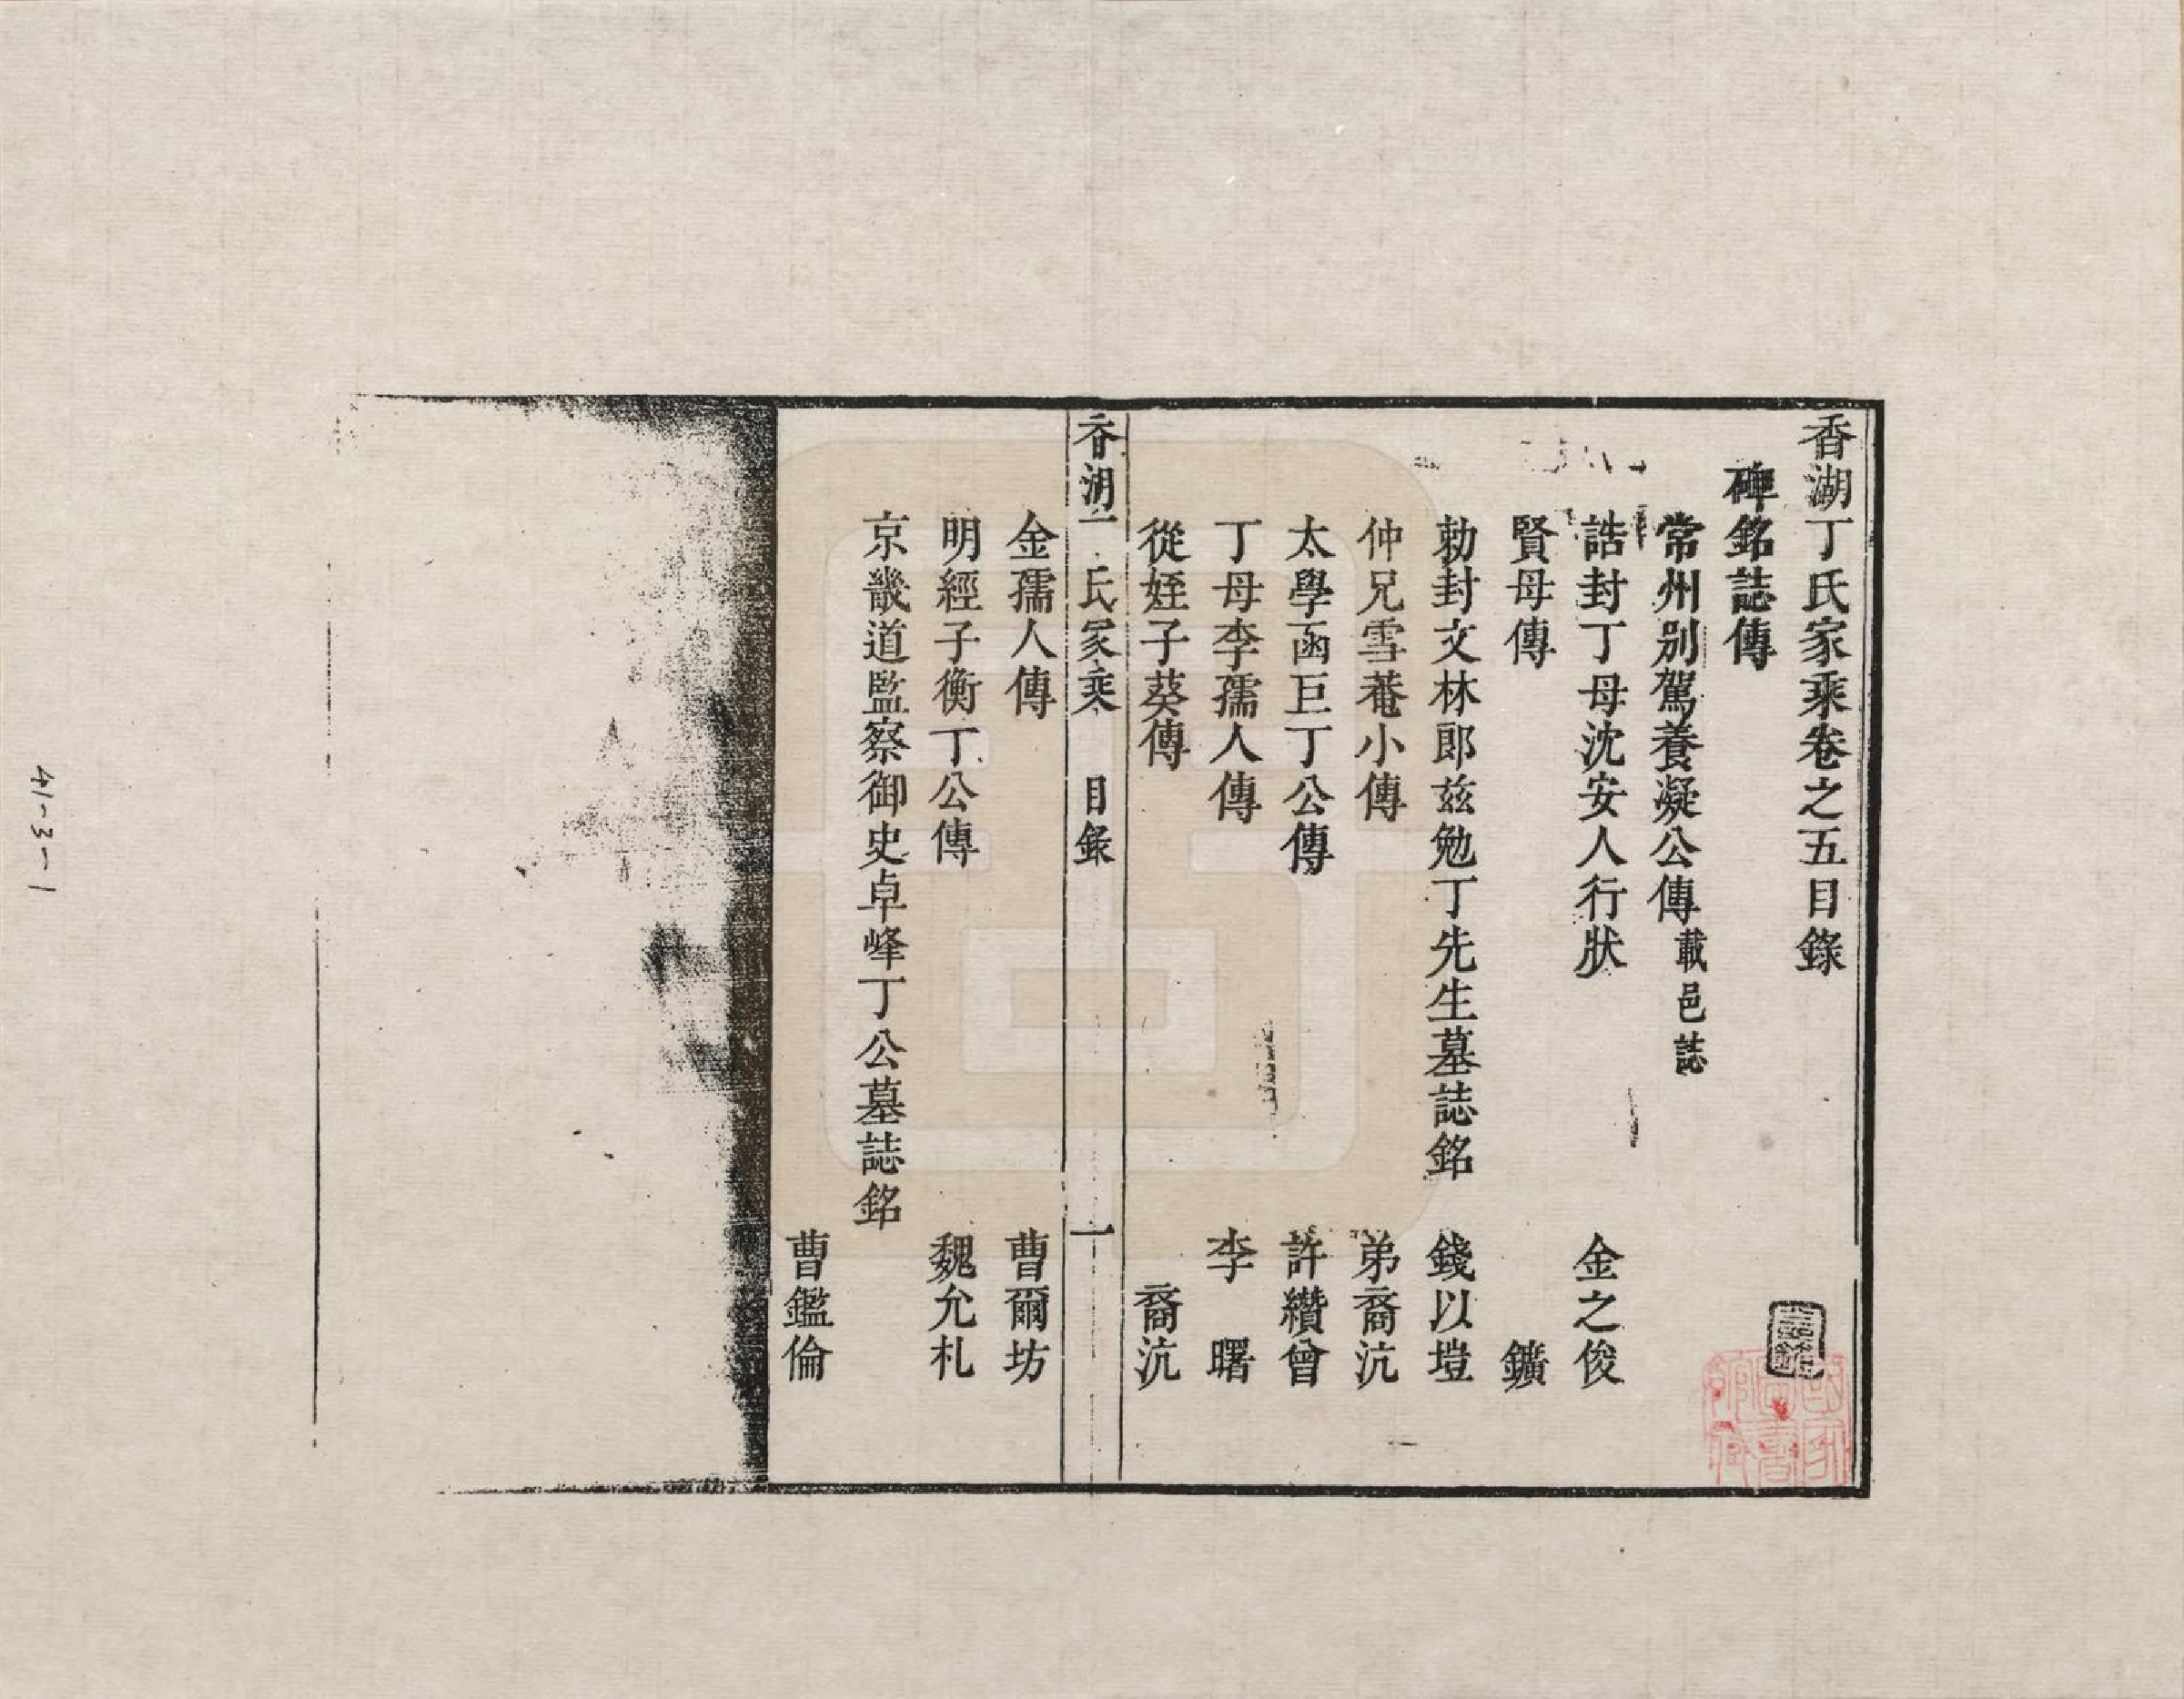 香湖丁氏家乘卷之五目錄
碑銘誌傳
常州別駕養凝公傳載邑誌
誥封丁母沈安人行狀 金之俊
賢母傳 鑛
勅封文林郎兹勉丁先生墓誌銘 錢以塏
仲兄雪菴小傳 弟裔沆
太學函巨丁公傳 許纘曾
丁母李孺人傳 李曙
從姪子葵傳 裔沆
香湖丁氏家乘 目錄 一
金孺人傳 曹爾坊
明經子衡丁公傳 魏允札
京畿道監察御史卓峰丁公墓誌銘
曹鑑倫
41-3-1